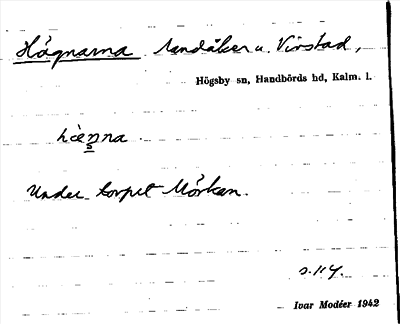 Högnarna landåker u. Virstad,
Högsby sn, Handbörds hd, Kalm. l.
hènna.
Under torpet Mörkan.
s. 114.
Ivar Modéer 1942